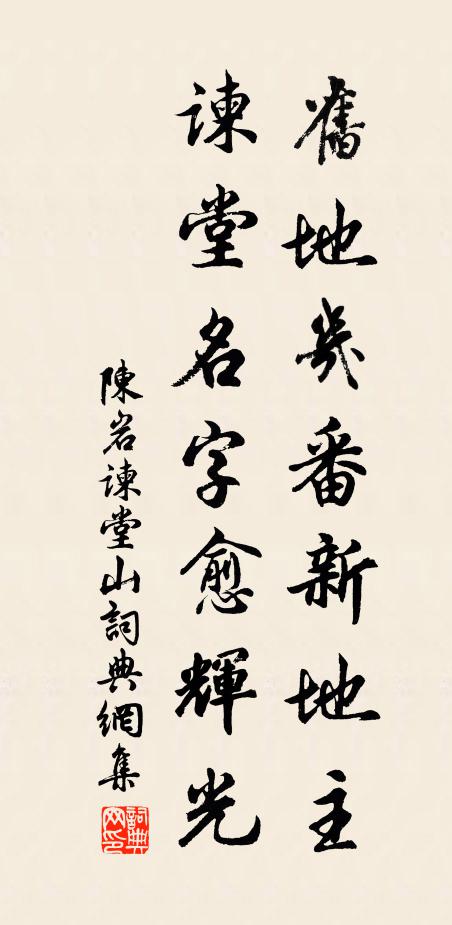 舊地幾番新地主
諫堂名字愈輝光
陳岩諫堂山詞典網集
詞典网印